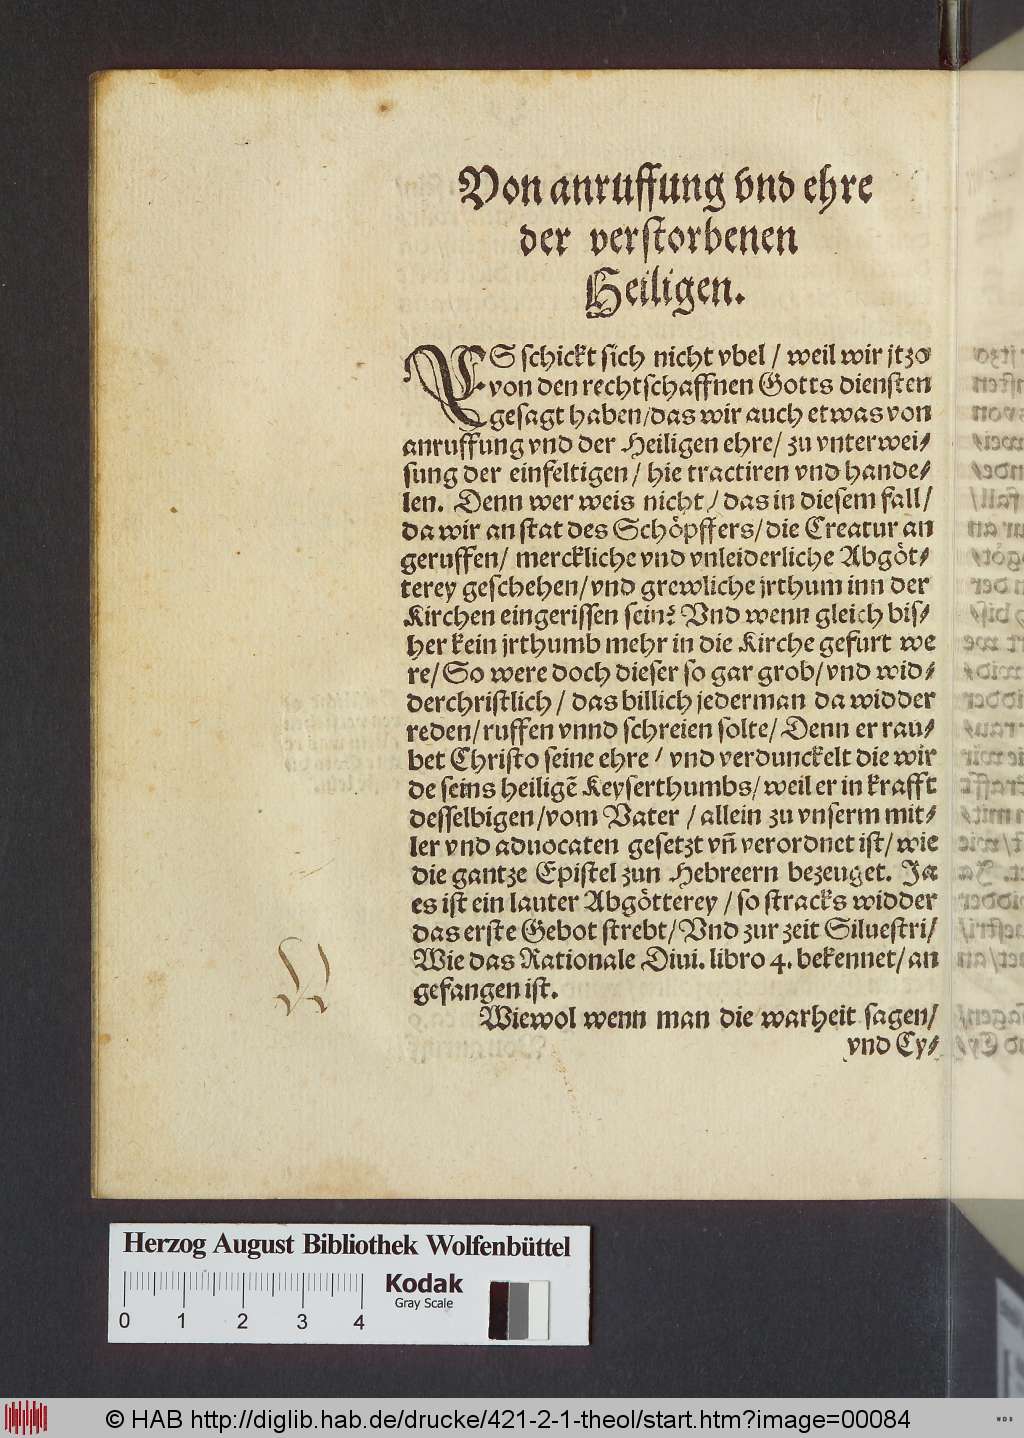 Von anruffung vnd ehre
der verstorbenen
Heiligen.
ES schickt sich nicht vbel / weil wir jtzo
von den rechtschaffnen Gotts diensten
gesagt haben/das wir auch etwas von
anruffung vnd der Heiligen ehre/ zu vnterwei⸗
sung der einfeltigen / hie tractiren vnd hande⸗
len. Denn wer weis nicht / das in diesem fall/
da wir an stat des Schöpffers/die Creatur an
geruffen/ merckliche vnd vnleiderliche Abgöt⸗
terey geschehen/vnd grewliche jrthum inn der
Kirchen eingerissen sein? Vnd wenn gleich bis⸗
her kein jrthumb mehr in die Kirche gefurt we
re/ So were doch dieser so gar grob/vnd wid⸗
derchristlich / das billich jederman da widder
reden/ruffen vnnd schreien solte/ Denn er rau⸗
bet Christo seine ehre / vnd verdunckelt die wir
de seins heiligē Keyserthumbs/weil er in krafft
desselbigen/vom Vater / allein zu vnserm mit⸗
ler vnd aduocaten gesetzt vñ verordnet ist/ wie
die gantze Epistel zun Hebreern bezeuget. Ja
es ist ein lauter Abgötterey / so stracks widder
das erste Gebot strebt/Vnd zur zeit Siluestri/
Wie das Rationale Diui. libro 4. bekennet/an
gefangen ist.
Wiewol wenn man die warheit sagen/
vnd Cy⸗
Herzog August Bibliothek Wolfenbüttel
Kodak
Gray Scale
0 1 2 3 4
© HAB http://diglib.hab.de/drucke/421-2-1-theol/start.htm?image=00084